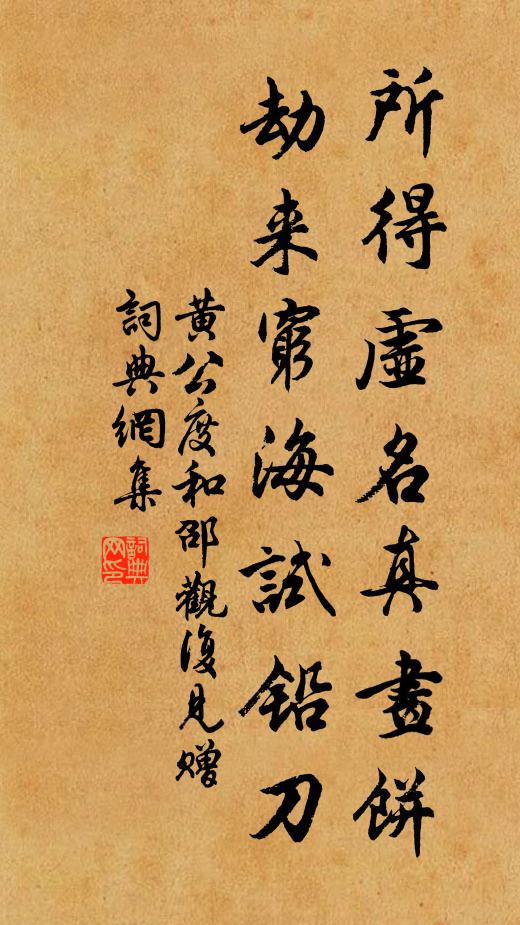 所得虛名真畫餅
劫来窮海試鉛刀
黄公度和邵觀復見贈
詞典網集
詞典網印